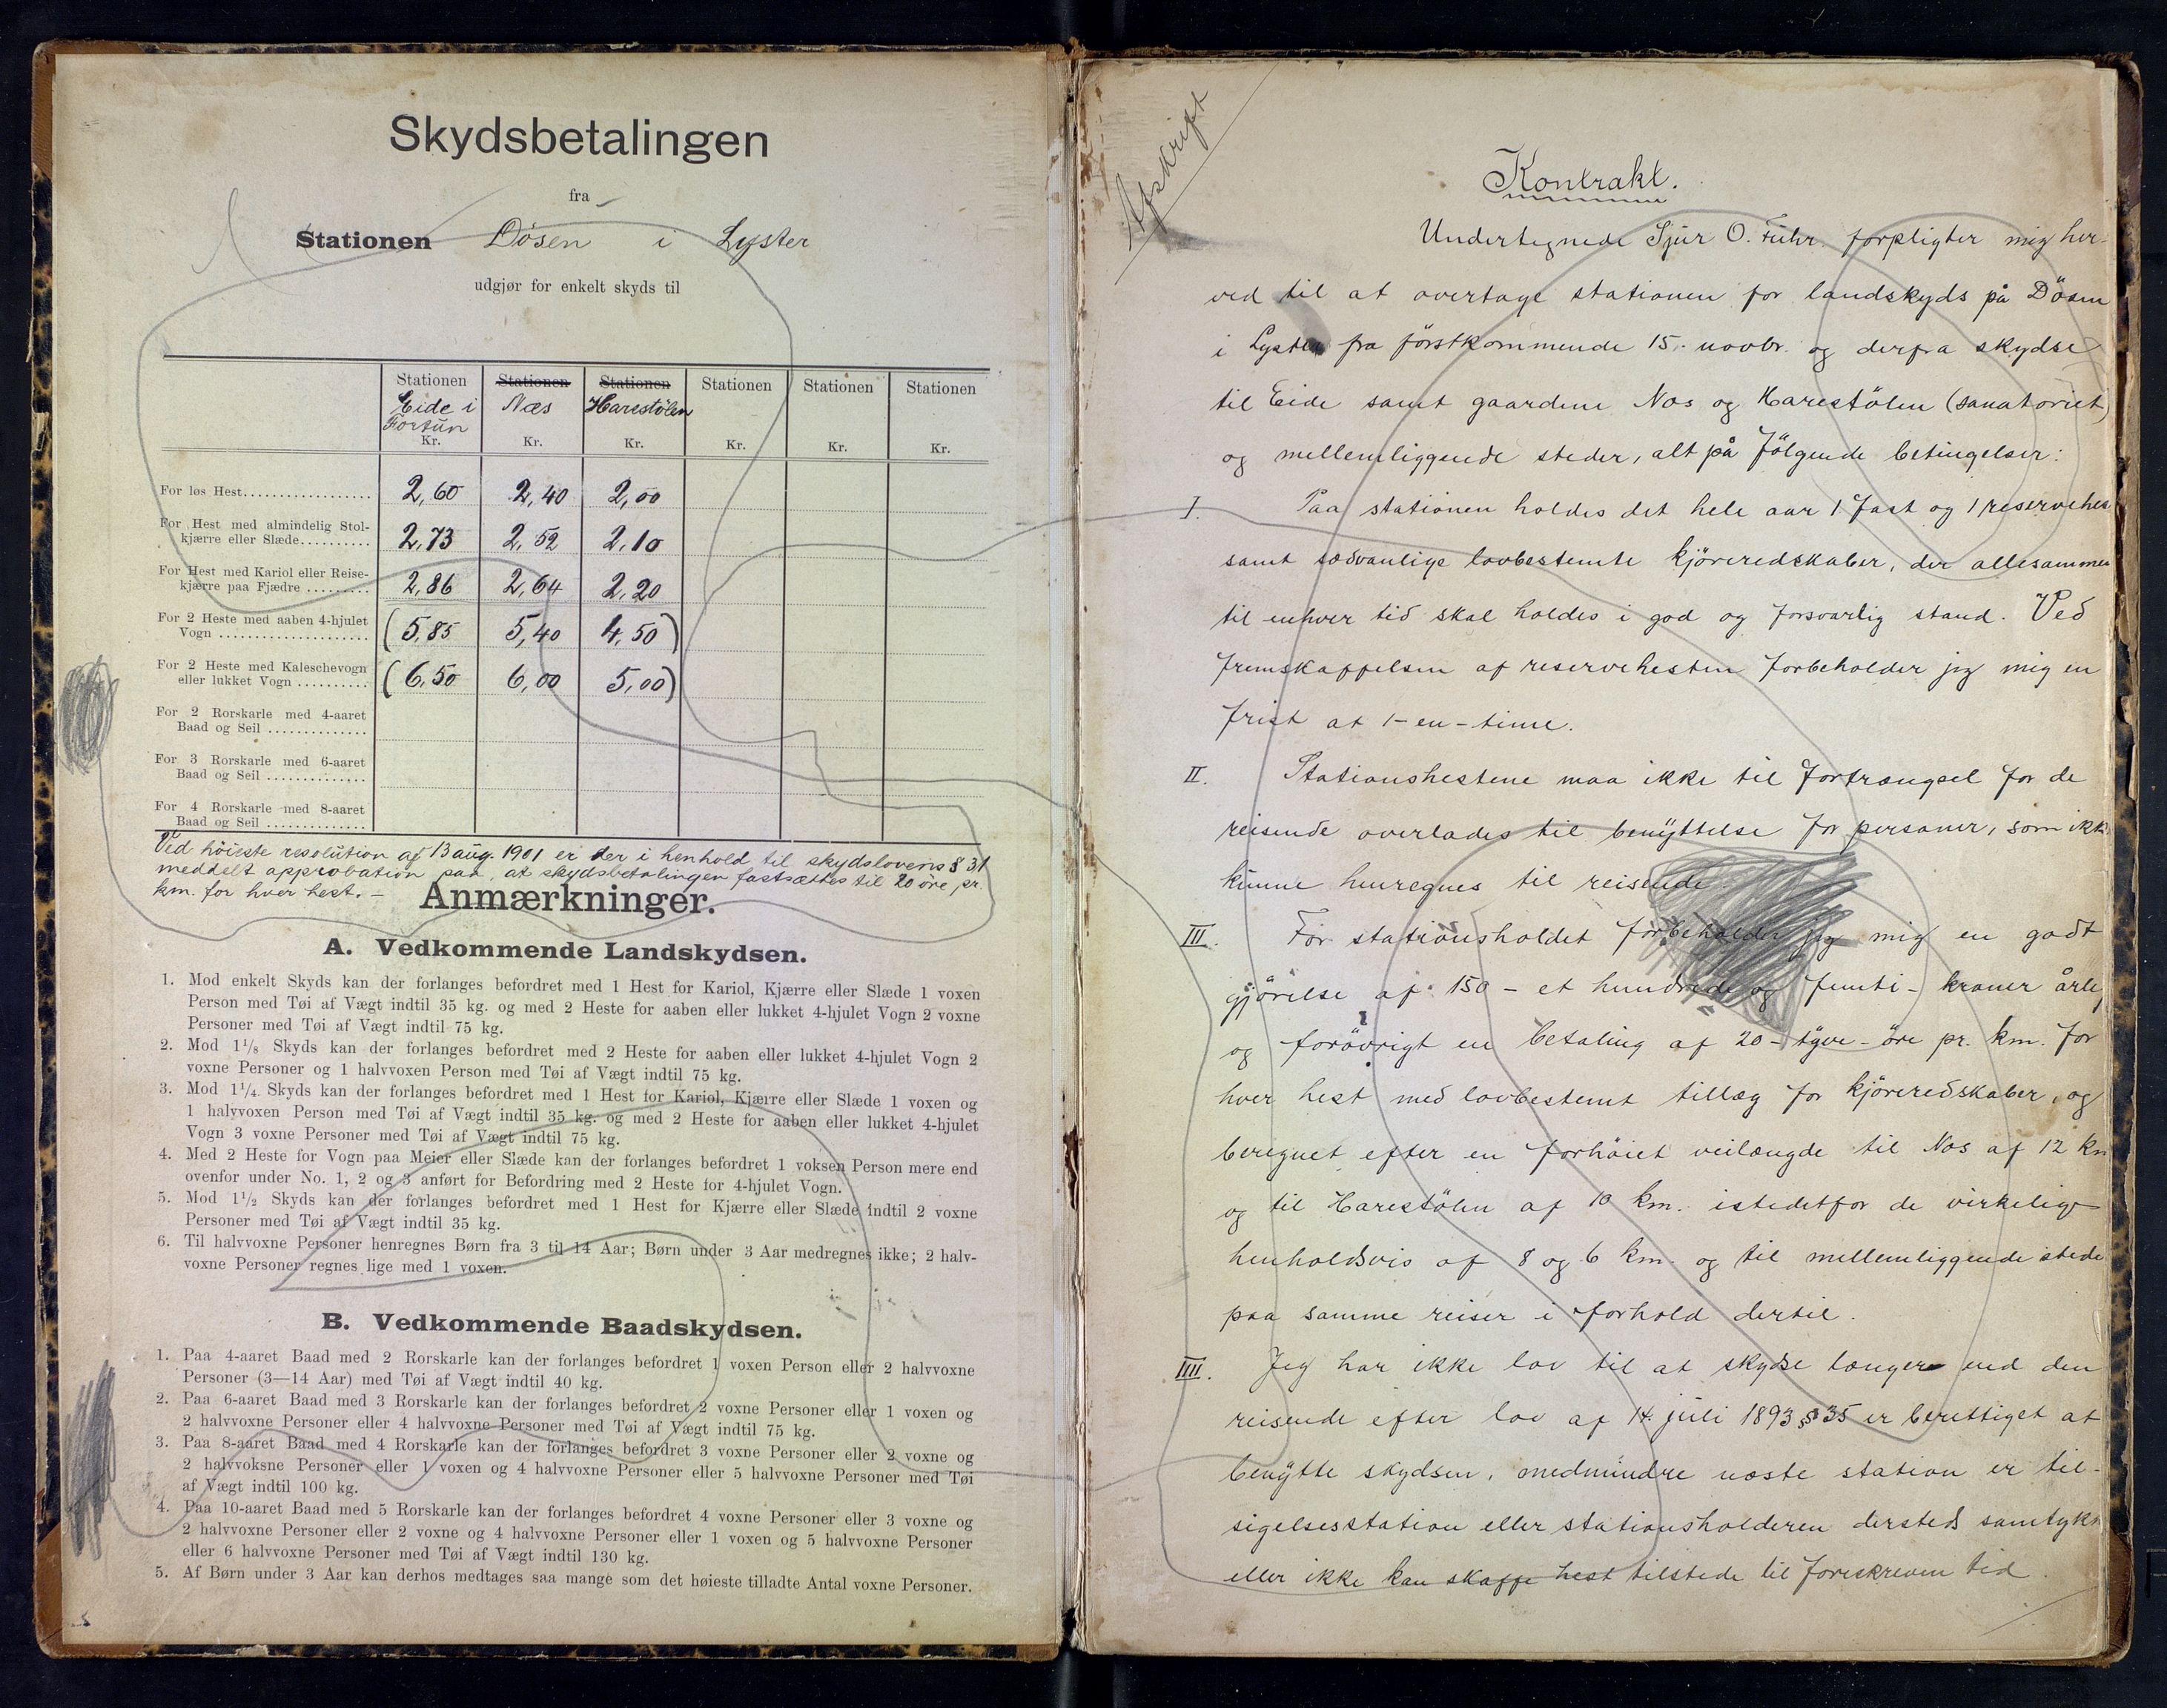 Skydsbetalingen
fra
Stationen Døsen i Lyster
udgjør for enkelt skyds til
Stationen Stationen Stationen Stationen Stationen Stationen
Eide i Næs Harestölen
Fortun
Kr. Kr. Kr. Kr. Kr. Kr.
For løs Hest................... 2,60 2,40 2,00
For Hest med almindelig Stol-
kjærre eller Slæde.......... 2,73 2,52 2,10
For Hest med Kariol eller Reise-
kjærre paa Fjædre ......... 2,86 2,64 2,20
For 2 Heste med aaben 4-hjulet
Vogn ..................... (5,85 5,40 4,50)
For 2 Heste med Kaleschevogn
eller lukket Vogn .......... (6,50 6,00 5,00)
For 2 Rorskarle med 4-aaret
Baad og Seil ..............
For 3 Rorskarle med 6-aaret
Baad og Seil ..............
For 4 Rorskarle med 8-aaret
Baad og Seil ..............
Ved høieste resolution af 13 aug. 1901 er der i henhold til skydslovens § 31
meddelt approbation paa, at skydsbetalingen fastsættes til 20 öre pr.
km. for hver hest. –
Anmærkninger.
A. Vedkommende Landskydsen.
1. Mod enkelt Skyds kan der forlanges befordret med 1 Hest for Kariol, Kjærre eller Slæde 1 voxen
Person med Tøi af Vægt indtil 35 kg. og med 2 Heste for aaben eller lukket 4-hjulet Vogn 2 voxne
Personer med Tøi af Vægt indtil 75 kg.
2. Mod 1 1/8 Skyds kan der forlanges befordret med 2 Heste for aaben eller lukket 4-hjulet Vogn 2
voxne Personer og 1 halvvoxen Person med Tøi af Vægt indtil 75 kg.
3. Mod 1 1/4 Skyds kan der forlanges befordret med 1 Hest for Kariol, Kjærre eller Slæde 1 voxen og
1 halvvoxen Person med Tøi af Vægt indtil 35 kg. og med 2 Heste for aaben eller lukket 4-hjulet
Vogn 3 voxne Personer med Tøi af Vægt indtil 75 kg.
4. Med 2 Heste for Vogn paa Meier eller Slæde kan der forlanges befordret 1 voksen Person mere end
ovenfor under No. 1, 2 og 3 anført for Befordring med 2 Heste for 4-hjulet Vogn.
5. Mod 1 1/2 Skyds kan der forlanges befordret med 1 Hest for Kjærre eller Slæde indtil 2 voxne
Personer med Tøi af Vægt indtil 35 kg.
6. Til halvvoxne Personer henregnes Børn fra 3 til 14 Aar; Børn under 3 Aar medregnes ikke; 2 halv-
voxne Personer regnes lige med 1 voxen.
B. Vedkommende Baadskydsen.
1. Paa 4-aaret Baad med 2 Rorskarle kan der forlanges befordret 1 voxen Person eller 2 halvvoxne
Personer (3—14 Aar) med Tøi af Vægt indtil 40 kg.
2. Paa 6-aaret Baad med 3 Rorskarle kan der forlanges befordret 2 voxne Personer eller 1 voxen og
2 halvvoxne Personer eller 4 halvvoxne Personer med Tøi af Vægt indtil 75 kg.
3. Paa 8-aaret Baad med 4 Rorskarle kan der forlanges befordret 3 voxne Personer eller 2 voxne og
2 halvvoksne Personer eller 1 voxen og 4 halvvoxne Personer eller 5 halvvoxne Personer med Tøi
af Vægt indtil 100 kg.
4. Paa 10-aaret Baad med 5 Rorskarle kan der forlanges befordret 4 voxne Personer eller 3 voxne og
2 halvvoxne Personer eller 2 voxne og 4 halvvoxne Personer eller 1 voxen og 5 halvvoxne Personer
eller 6 halvvoxne Personer med Tøi af Vægt indtil 130 kg.
5. Af Børn under 3 Aar kan derhos medtages saa mange som det høieste tilladte Antal voxne Personer.
Afskrift
Kontrakt.
Undertegnede Sjur O. Fuhr forpligter mig her-
ved til at overtage stationen for landskyds på Dösen
i Lyster fra förstkommende 15. novbr. og derfra skydse
til Eide samt gaardene Næs og Harestölen (sanatoriet)
og mellemliggende steder, alt på fölgende betingelser:
I. Paa stationen holdes det hele aar 1 fast og 1 reservehes
samt sædvanlige lovbestemte kjöreredskaber, der allesammen
til enhver tid skal holdes i god og forsvarlig stand. Ved
fremskaffelsen af reservehesten forbeholder jeg mig en
frist at 1 - en - time.
II. Stationshestene maa ikke til fortrængsel for de
reisende overlades til benyttelse for personer, som ikk
kunne henregnes til reisende.
III. For stationsholdet forbeholder jeg mig en godt
gjörelse af 150 – et hundrede og femti – kroner årl
og forövrigt en betaling af 20 – tyve – öre pr. km. for
hver hest med lovbestemt tillæg for kjöreredskaber, og
beregnet efter en forhöiet veilængde til Næs af 12 km
og til Harestölen af 10 km. istedetfor de virkelige
henholdsvis af 8 og 6 km. og til mellemliggende stede
paa samme reiser i forhold dertil.
IIII. Jeg har ikke lov til at skydse længer end den
reisende efter lov af 14. juli 1893 § 35 er berettiget at
benytte skydsen, medmindre næste station er til-
sigelsesstation eller stationsholderen dersteds samtykk
eller ikke kan skaffe hest tilstede til foreskreven tid